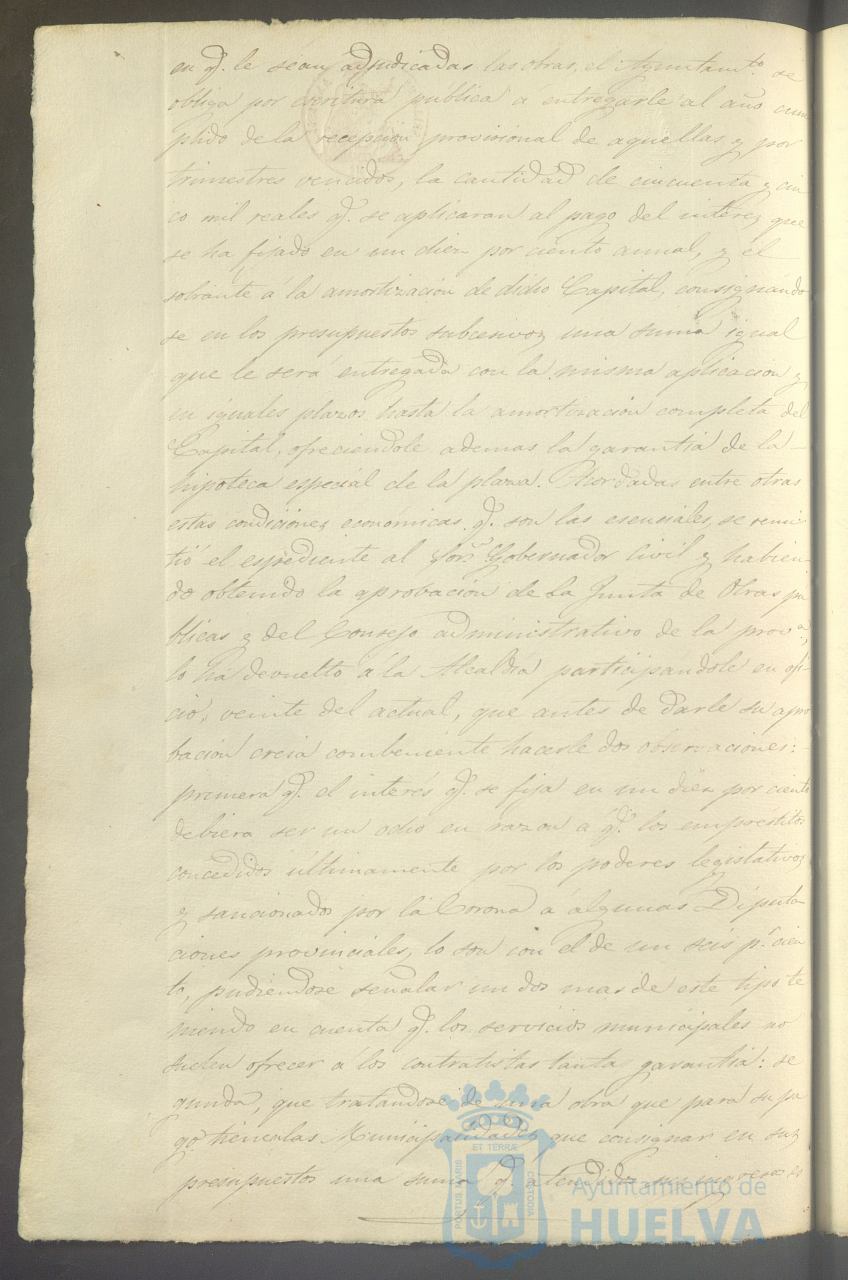 en qᵉ. le sean adjudicadas las obras, el Ayuntamᵗᵒ. se
obliga por escritura publica á entregarle al año cum
plido de la recepcion provisional de aquellas y por
trimestres vencidos, la cantidad de cincuenta y cin
co mil reales qᵉ. se aplicaran al pago del interes que
se ha fijado en un diez por ciento anual, y el
sobrante á la amortizacion de dicho Capital, consignando
se en los presupuestos subcesivos una suma igual
que le será entregada con la misma aplicacion y
en iguales plazos hasta la amortizacion completa del
Capital, ofreciendole ademas la garantia de la
hipoteca especial de la plaza. Acordadas entre otras
estas condiciones económicas qᵉ. son las esenciales, se remi
tió el espediente al Sorʳ. Gobernador Civil y habien-
do obtenido la aprobacion de la Junta de Obras pu
blicas y del Consejo administrativo de la provᵃ.,
lo ha devuelto á la Alcaldia participandole en ofi-
cio, veinte del actual, que antes de darle su apro
bacion creia combeniente hacerle dos observaciones:
primera qᵉ. el interés qᵉ. se fija en un diez por ciento
debiera ser un ocho en razon á qᵉ. los empréstitos
concedidos últimamente por los poderes legislativos
y sancionados por la Corona á algunas Diputa
ciones provinciales, lo son con el de un seis pʳ. cien
to, pudiendose señalar un dos mas de este tipo te
niendo en cuenta qᵉ. los servicios municipales no
suelen ofrecer á los contratistas tanta garantia: se
gunda, que tratandose de una obra que para su pa
go tienen las Municipalidades que consignar en sus
presupuestos una suma qᵉ. atendidos sus ingresos es
PORTUS MARIS ET TERRÆ CUSTODIA
Ayuntamiento de
HUELVA